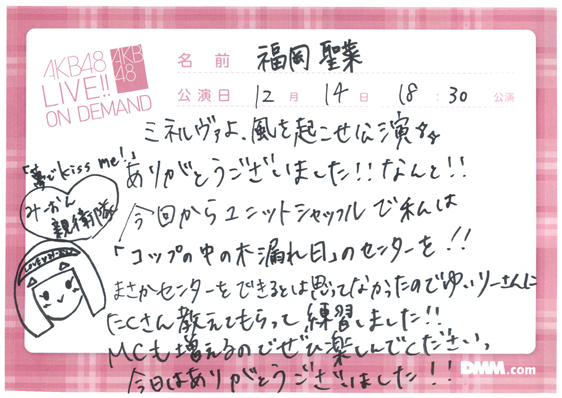 AKB48
LIVE!!
ON DEMAND
AKB
48
名前 福岡 聖菜
公演日 12月 14日 18:30 公演
ミネルヴァよ、風を起こせ公演☆☆
ありがとうございました!!なんと!!
今回からユニットシャッフルで私は
「コップの中の木漏れ日」のセンターを!!
まさかセンターをできるとは思ってなかったのでゆいりーさんに
たくさん教えてもらって練習しました!!
MCも増えるのでぜひ楽しんでください。
今日はありがとうございました!!
「夢でkiss me!」
みーおん
親衛隊
DMM.com